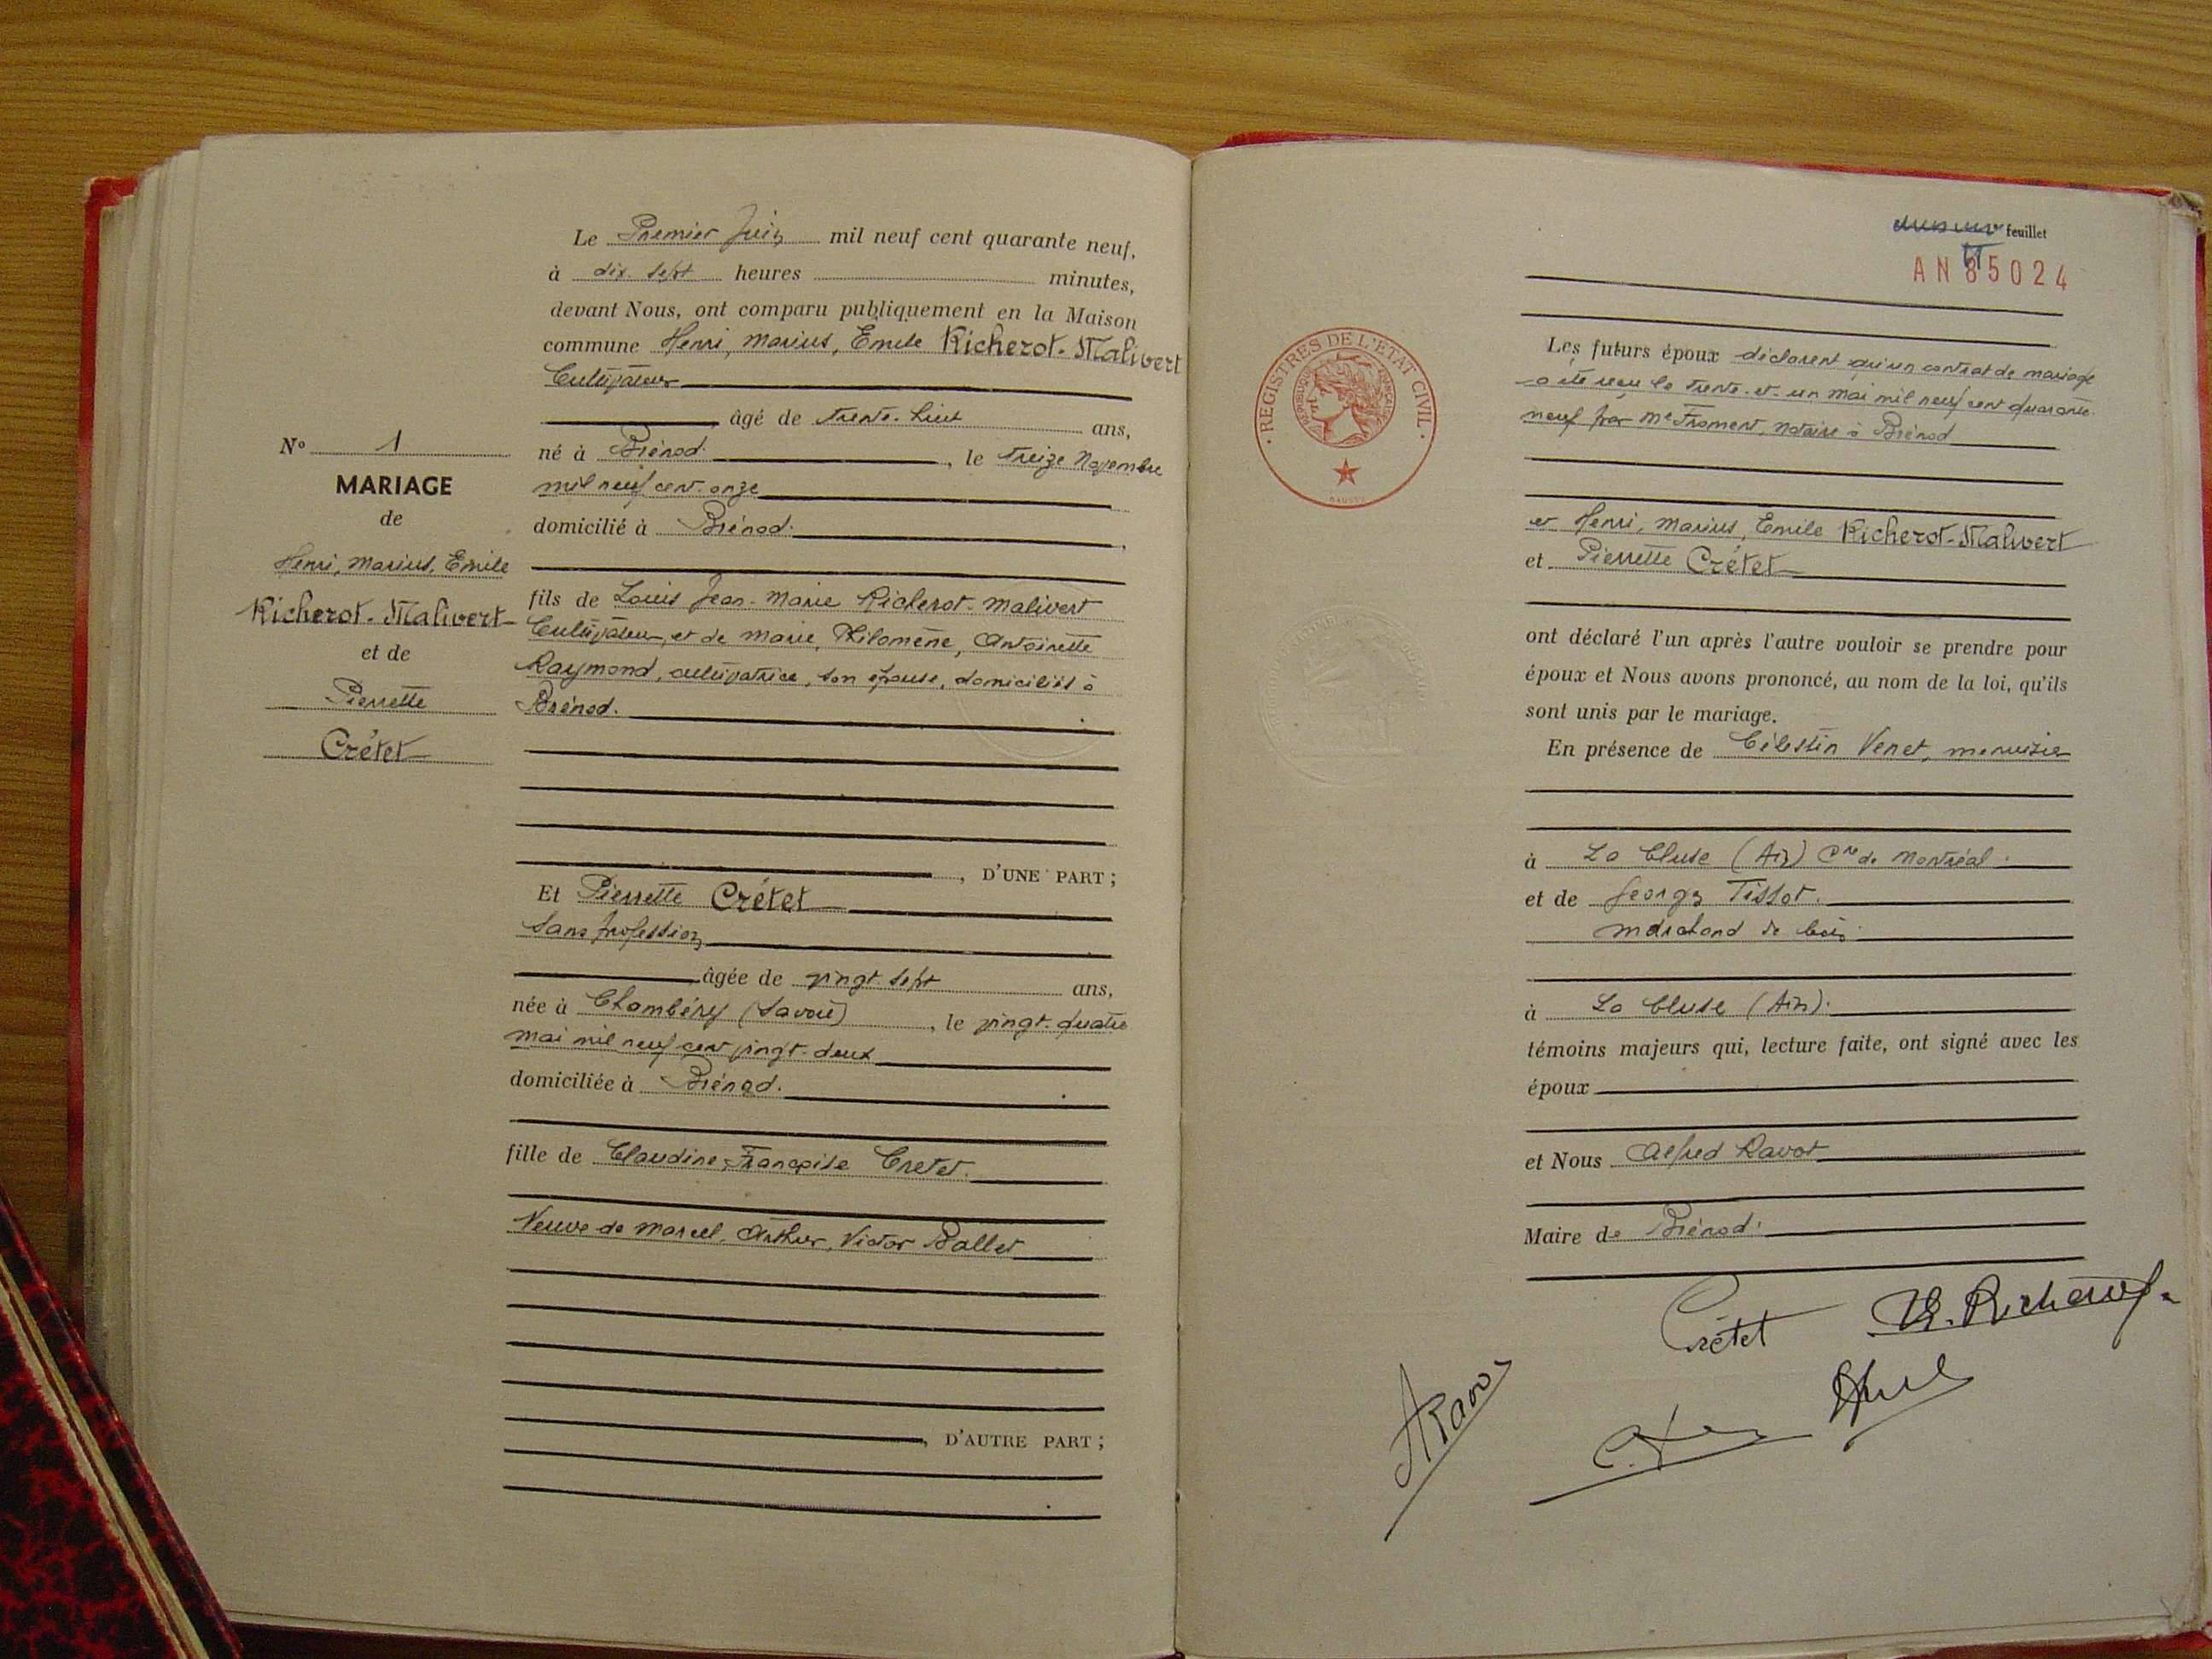 Le Premier Juin mil neuf cent quarante neuf,
à dix-sept heures minutes,
devant Nous, ont comparu publiquement en la Maison
commune Henri, Marius, Emile Richerot-Malivert
Cultivateur
âgé de trente-huit ans,
né à Brénod, le treize Novembre
mil neuf cent onze
domicilié à Brénod.
fils de Louis Jean-Marie Richerot-Malivert
Cultivateur, et de Marie, Philomène, Antoinette
Raymond, cultivatrice, son épouse, domiciliés à
Brénod.
D'UNE PART ;
Et Pierrette Crétet
Sans profession
âgée de vingt-sept ans,
née à Chambéry (Savoie), le vingt-quatre
mai mil neuf cent vingt-deux
domiciliée à Brénod.
fille de Claudine, Françoise Cretet.
Veuve de Marcel, Arthur, Victor Ballet
D'AUTRE PART ;
N° 1
MARIAGE
de
Henri, Marius, Emile
Richerot-Malivert
et de
Pierrette
Crétet
feuillet
AN 85024
REGISTRES DE L'ÉTAT CIVIL
RÉPUBLIQUE FRANÇAISE
Les futurs époux déclarent qu'un contrat de mariage
a été reçu le trente-et-un mai mil neuf cent quarante
neuf par Me Froment, notaire à Brénod
et Henri, Marius, Emile Richerot-Malivert
et Pierrette Crétet
ont déclaré l'un après l'autre vouloir se prendre pour
époux et Nous avons prononcé, au nom de la loi, qu'ils
sont unis par le mariage.
En présence de Célestin Venet, menuisier
à La Cluse (Ain) Cne de Montréal.
et de Georges Tissot.
marchand de bois
à La Cluse (Ain).
témoins majeurs qui, lecture faite, ont signé avec les
époux
et Nous Alfred Ravot
Maire de Brénod.
Crétet
ARavot